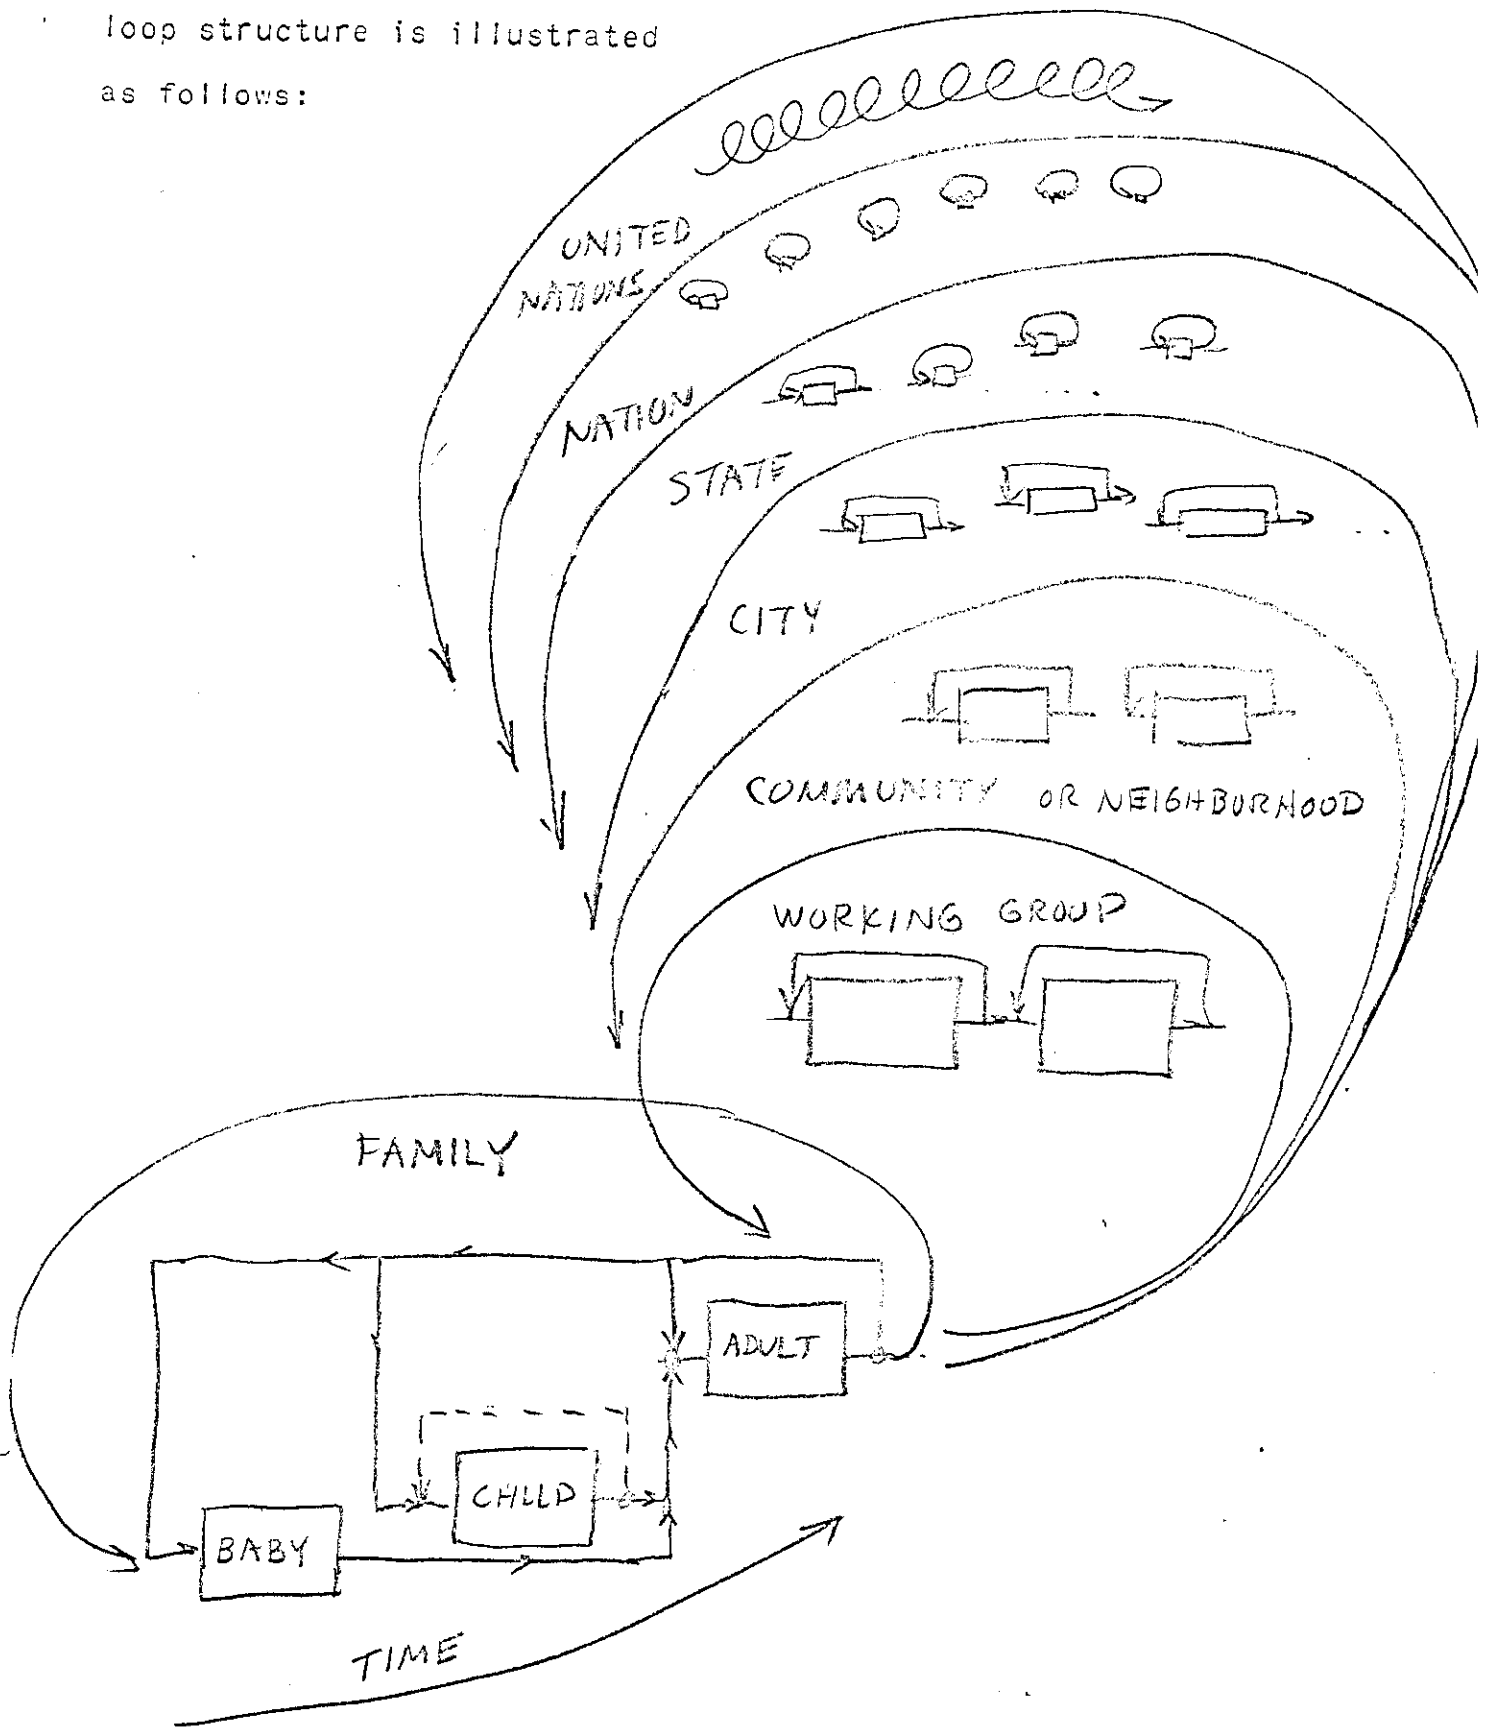 loop structure is illustrated
as follows:
UNITED
NATIONS
NATION
STATE
CITY
COMMUNITY OR NEIGHBORHOOD
WORKING GROUP
FAMILY
ADULT
CHILD
BABY
TIME